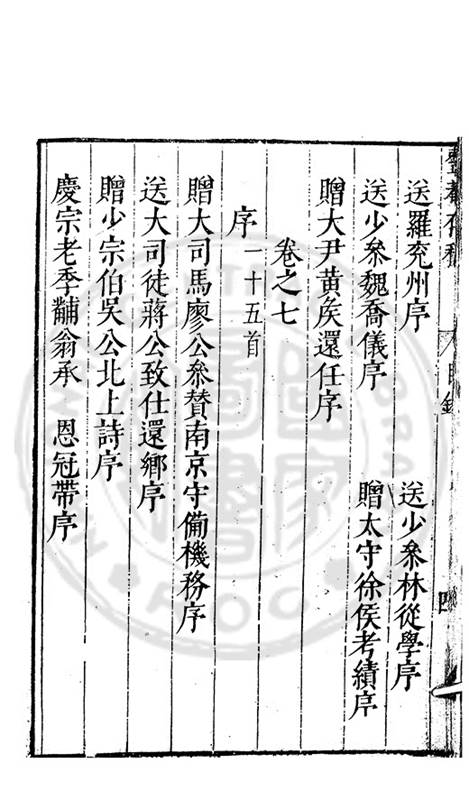 送羅兖州序 送少叅林從學序
送少叅魏喬儀序 贈太守徐侯考績序
贈大尹黃矦還任序
卷之七
序 一十五首
贈大司馬廖公叅賛南京守備機務序
送大司徒蔣公致仕還鄉序
贈少宗伯吳公北上詩序
慶宗老季黼翁承 恩冠帶序